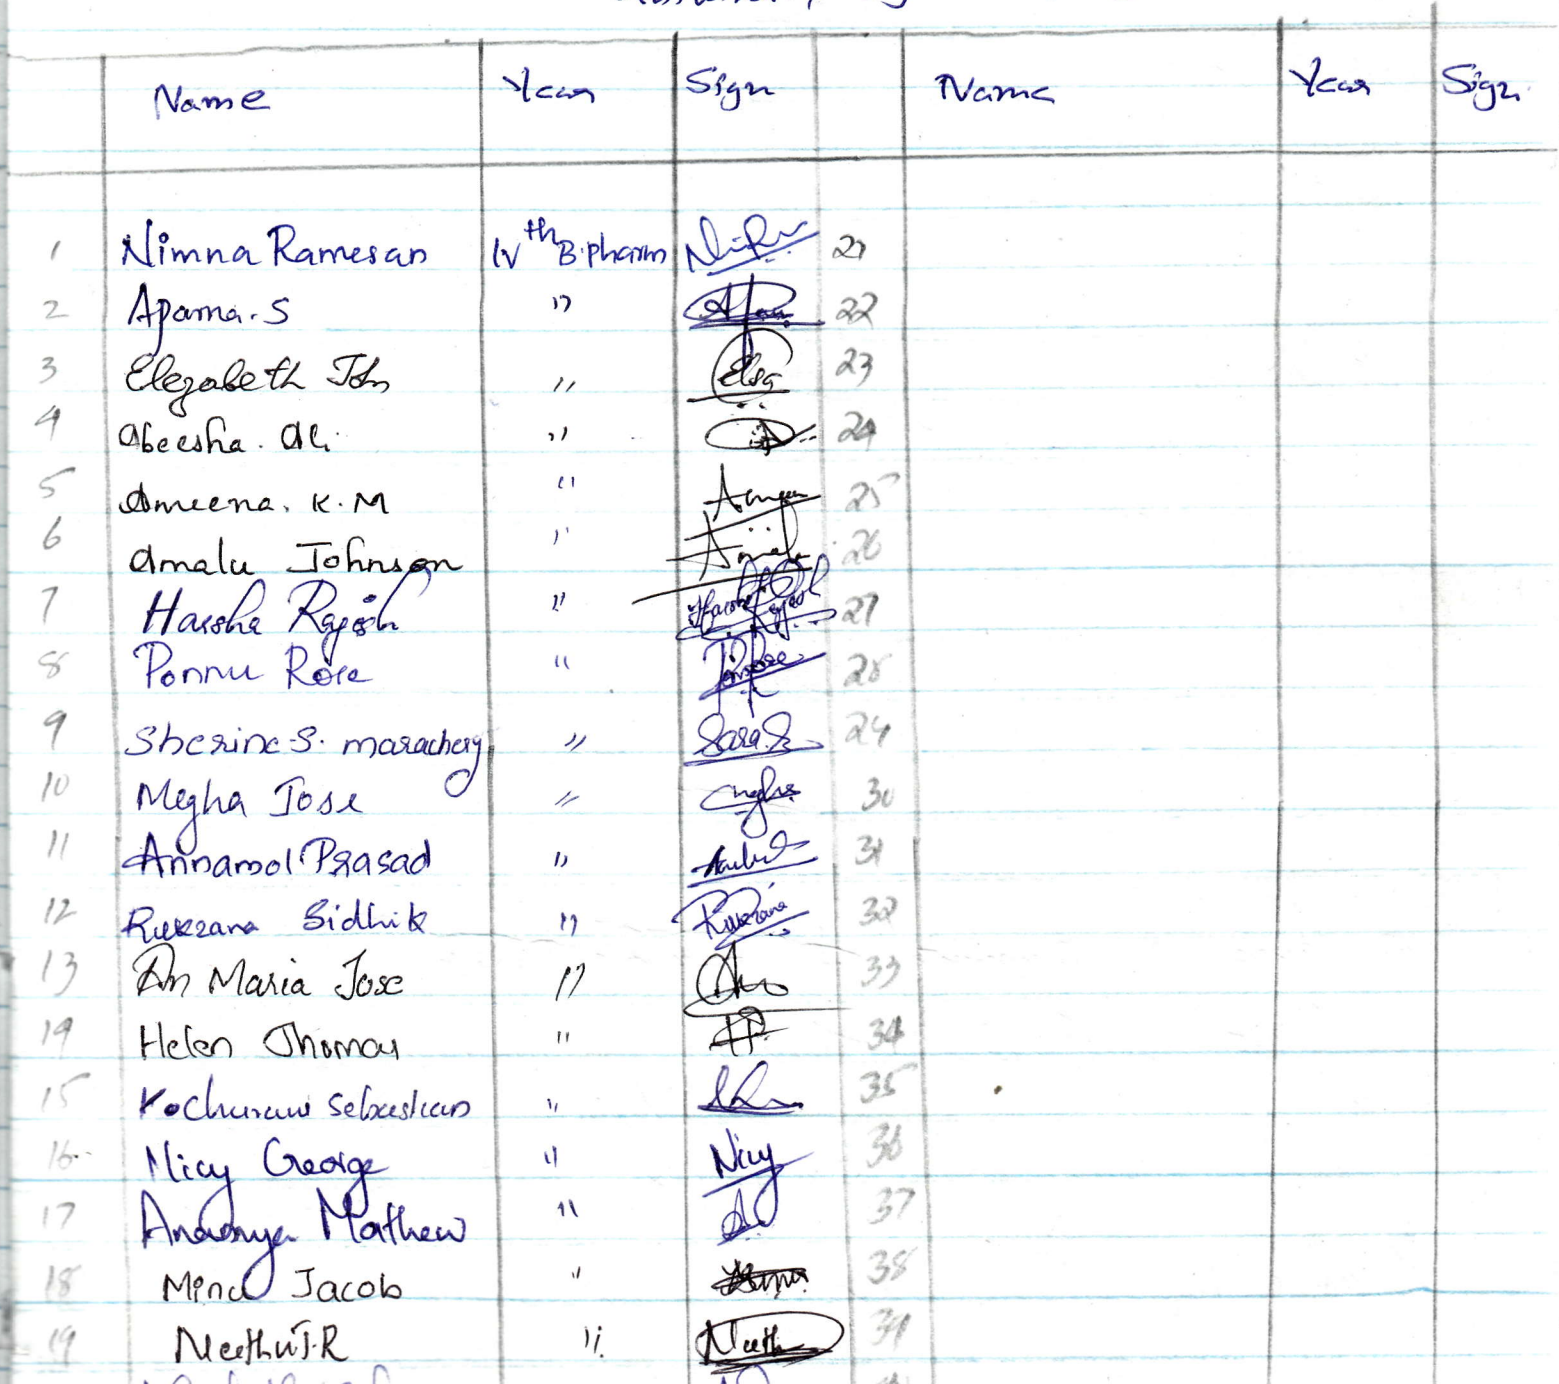 Name Year Sign Name Year Sign
1 Nimna Ramesan IVth B.pharm 21
2 Aparna.S " 22
3 Elezabeth John " Elsa 23
4 Abeesha. Ali " 24
5 Ameena. K.M " 25
6 Amalu Johnson " 26
7 Harsha Rajesh " Harsha Rajesh 27
8 Ponnu Rose " 28
9 Sherine S. marachery " 29
10 Megha Jose " 30
11 Annamol Prasad " 31
12 Rukzana Sidhik " Rukzana 32
13 An Maria Jose " 33
14 Helen Thomas " 34
15 Kochurani Sebastian " 35
16 Nicy George " Nicy 36
17 Anaonya Mathew " 37
18 Minu Jacob " 38
19 Neethu T.R " Neethu 39